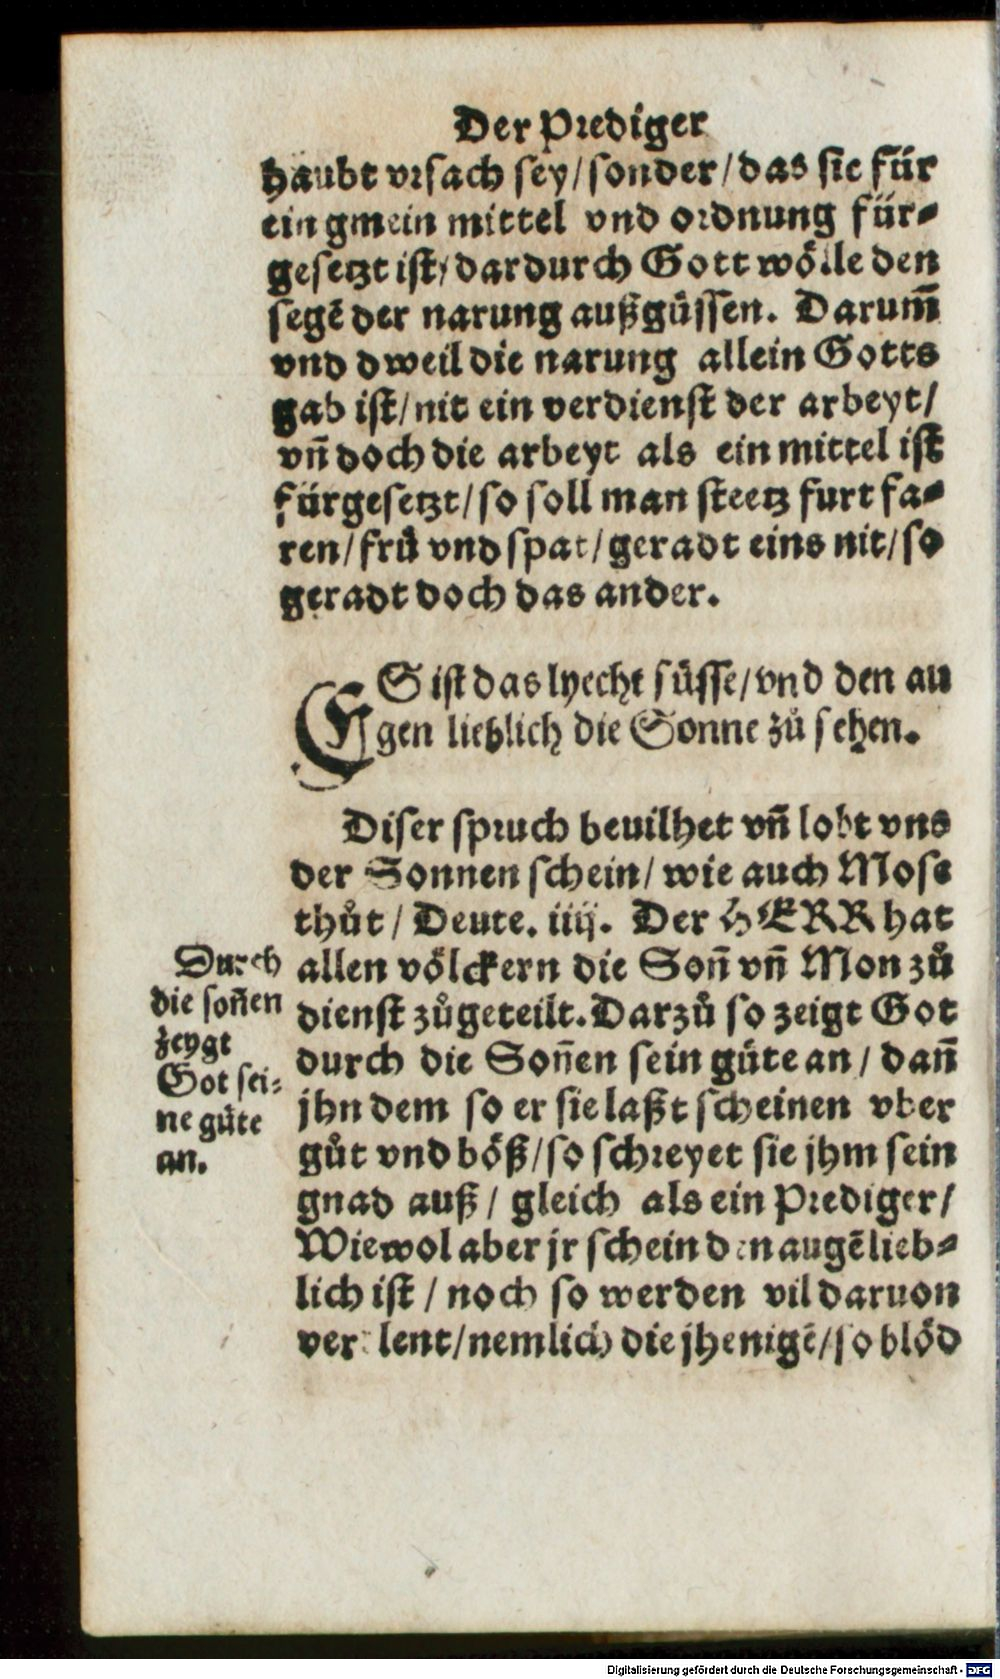 Der Prediger
haubt vrsach sey/sonder/das sie für
ein gmein mittel vnd ordnung für⸗
gesetzt ist/dardurch Gott wölle den
segē der narung außgüssen. Darum̄
vnd dweil die narung allein Gotts
gab ist/nit ein verdienst der arbeyt/
vn̄ doch die arbeyt als ein mittel ist
fürgesetzt/so soll man steetz furt fa⸗
ren/frů vnd spat/geradt eins nit/so
geradt doch das ander.
ES ist das lyecht süsse/vnd den au
gen lieblich die Sonne zů sehen.
Diser spruch beuilhet vn̄ lobt vns
der Sonnen schein/wie auch Mose
thůt/Deute. iiij. Der HERR hat
allen völckern die Son̄ vn̄ Mon zů
dienst zůgeteilt. Darzů so zeigt Got
durch die Son̄en sein güte an/dan̄
jhn dem so er sie laßt scheinen vber
gůt vnd böß/so schreyet sie jhm sein
gnad auß/gleich als ein Prediger/
Wiewol aber jr schein den augē lieb⸗
lich ist/noch so werden vil daruon
verblent/nemlich die jhenigē/so blöd
Durch
die son̄en
zeygt
Got sei⸗
ne güte
an.
Digitalisierung gefördert durch die Deutsche Forschungsgemeinschaft - DFG